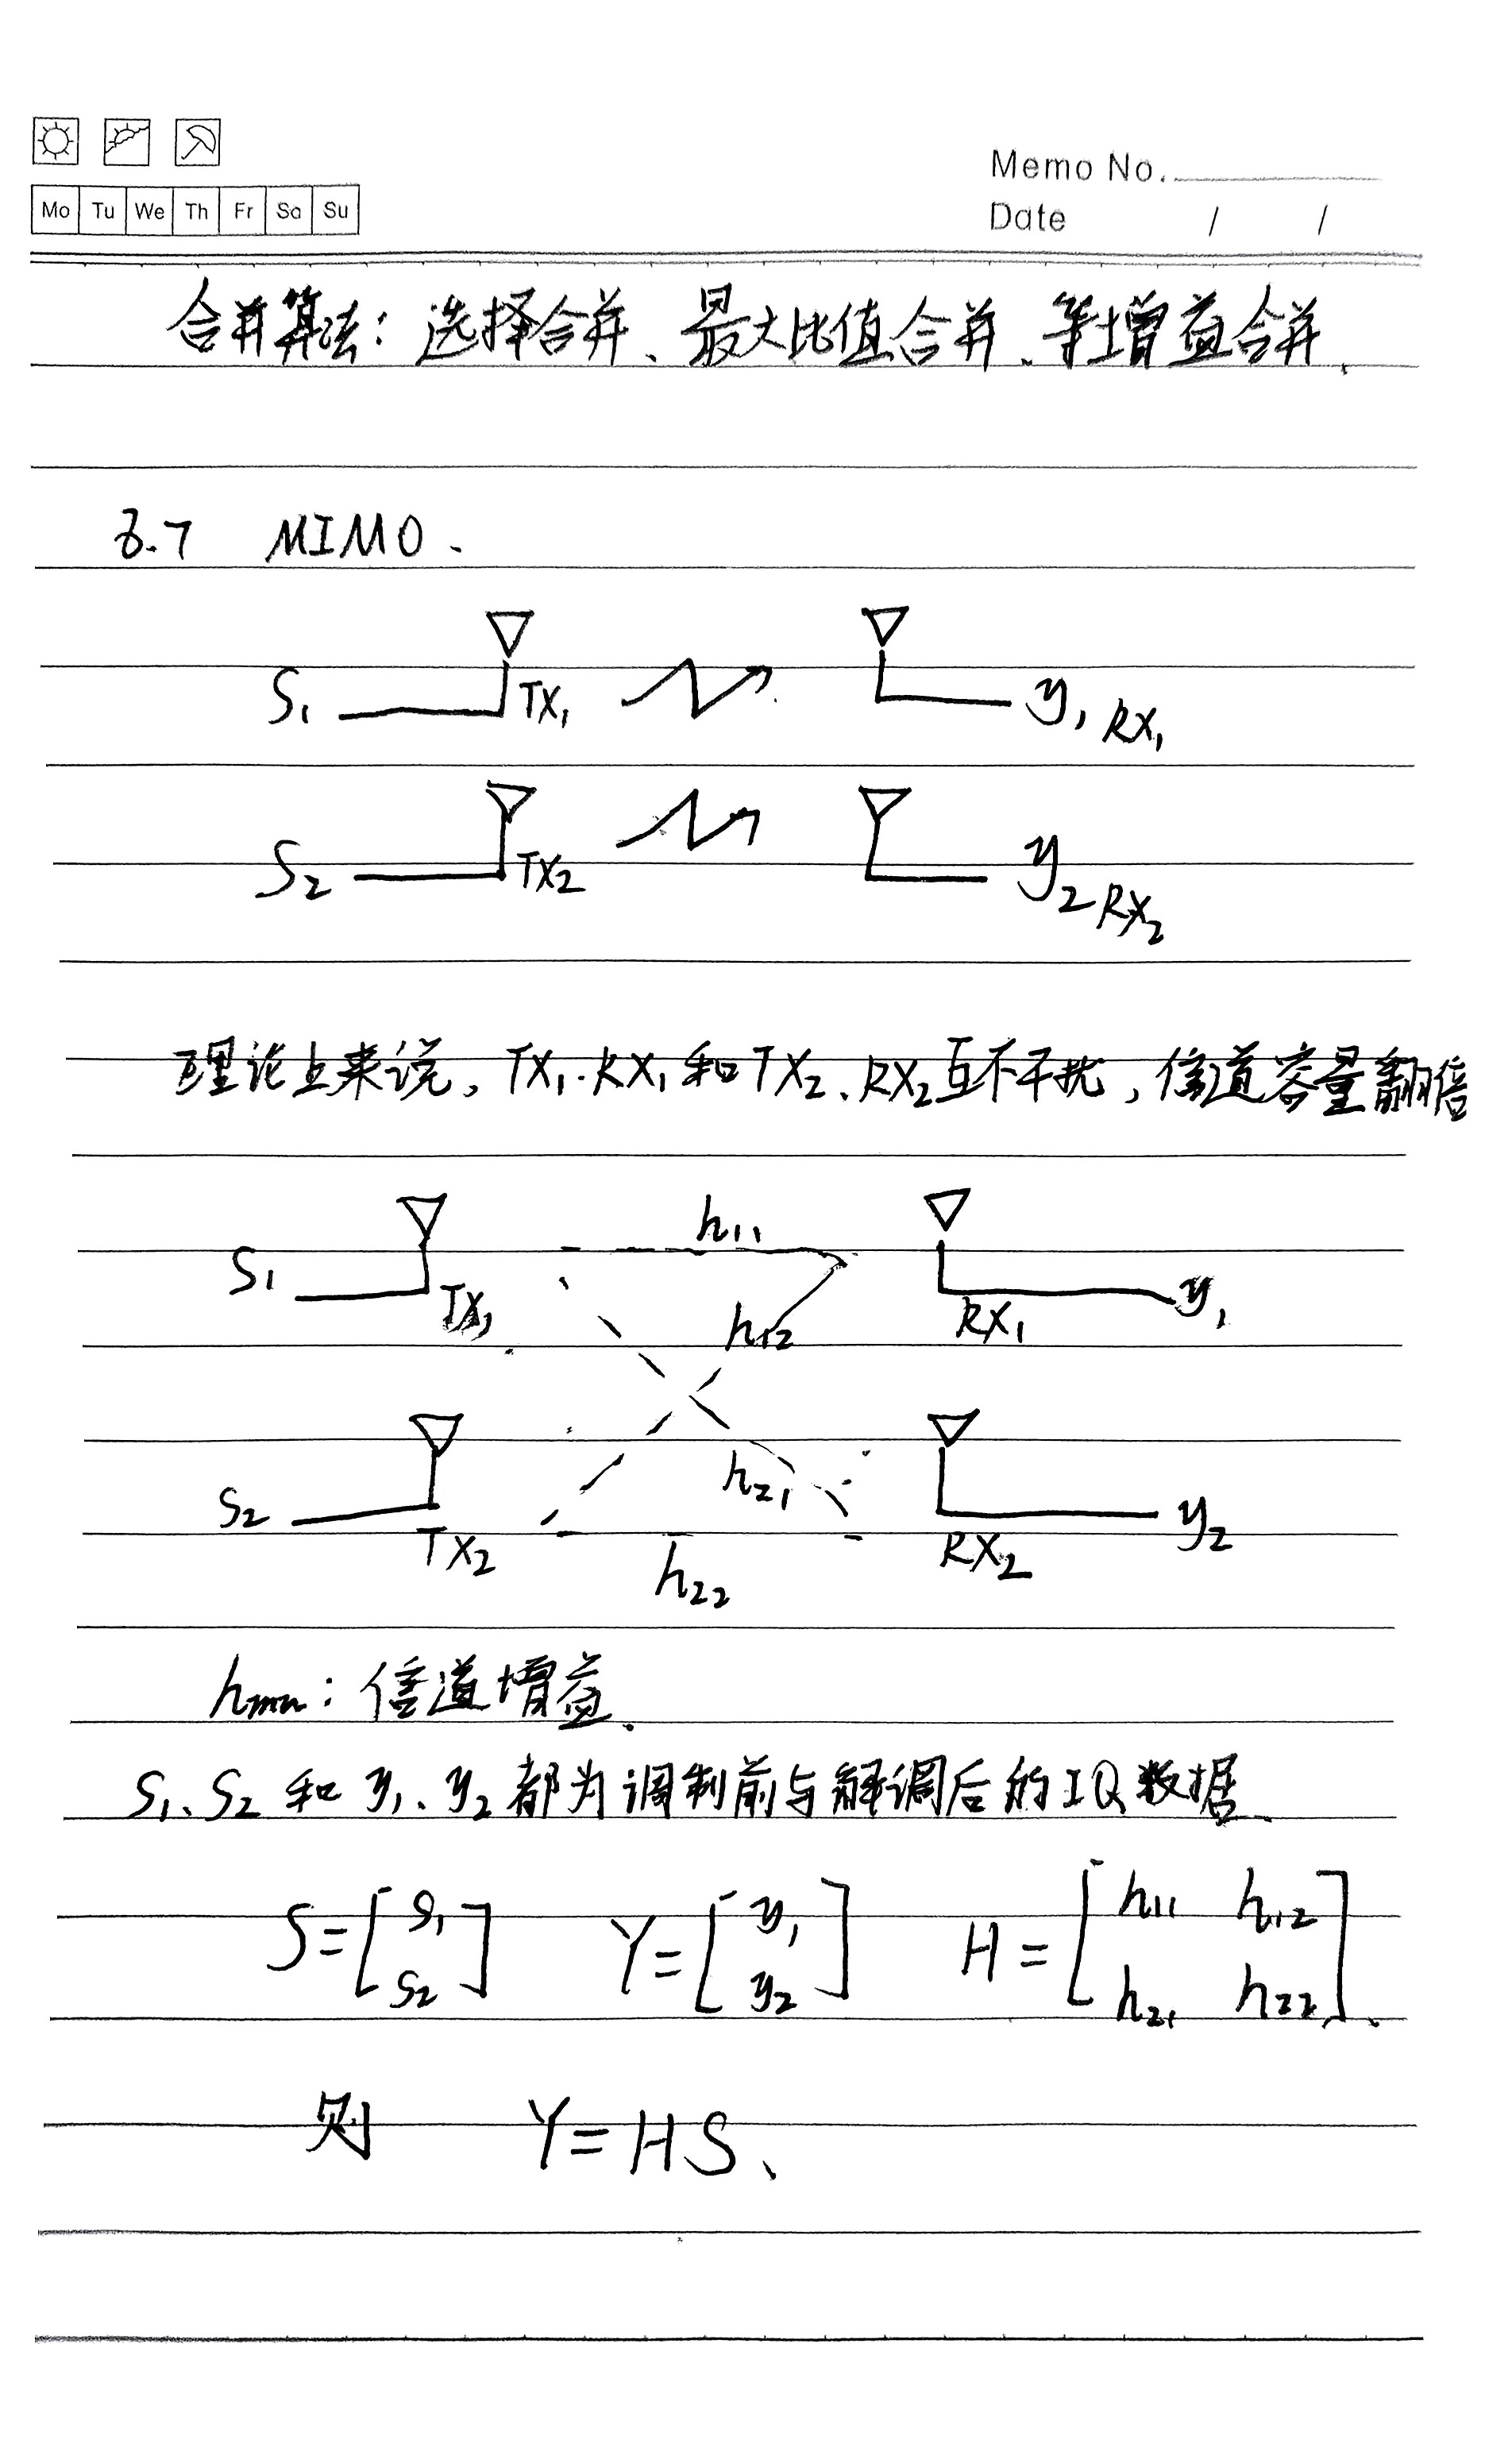 Memo No.
Mo Tu We Th Fr Sa Su
Date / /
合并算法：选择合并、最大比值合并、等增益合并.
8.7 MIMO.
S₁ TX₁ y₁ RX₁
S₂ TX₂ y₂ RX₂
理论上来说，TX₁、RX₁和TX₂、RX₂互不干扰，信道容量翻倍
h₁₁
S₁ TX₁ RX₁ y₁
h₁₂
h₂₁
S₂ TX₂ RX₂ y₂
h₂₂
hₘₙ：信道增益.
S₁、S₂和y₁、y₂都为调制前与解调后的IQ数据、
S=[S₁ S₂] Y=[y₁ y₂] H=[h₁₁ h₁₂ h₂₁ h₂₂].
则 Y=HS、